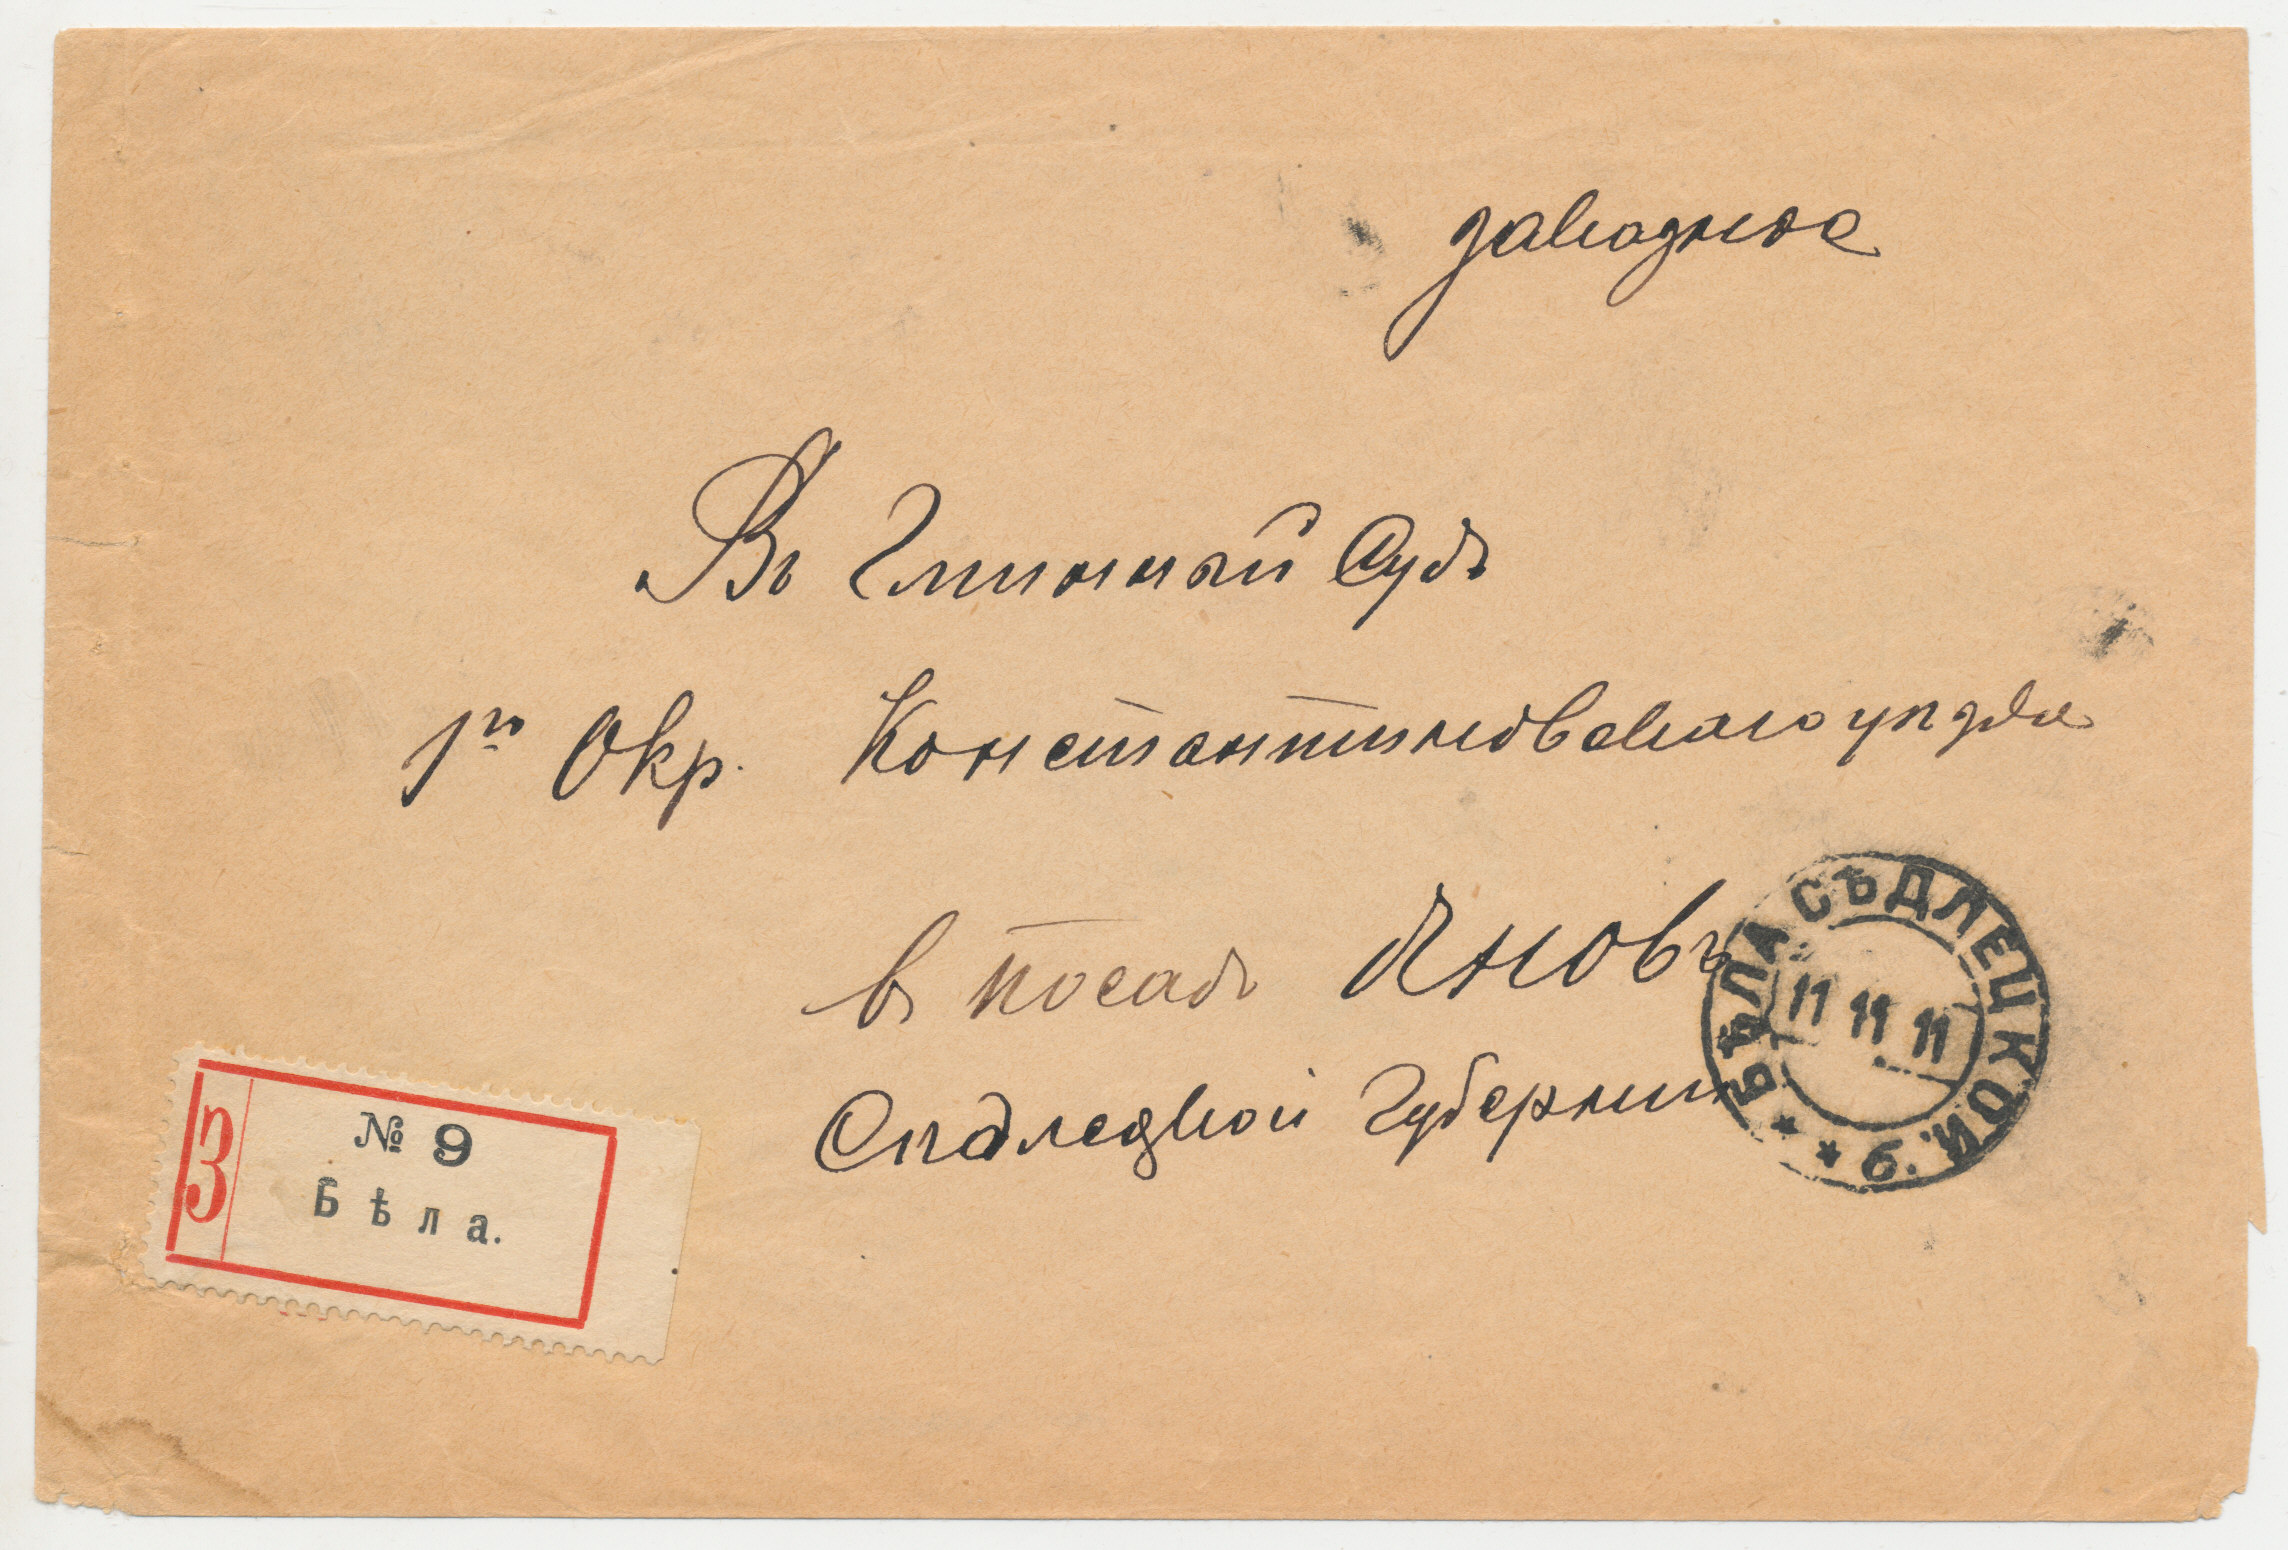 заказное
Въ Гминный Судъ
1го Окр. Константиновскаго уѣзда
въ посадъ Яновъ
Сѣдлецкой Губерніи
БѢЛА СѢДЛЕЦКОЙ. Г.
11 11 11
З
№ 9
Бѣла.